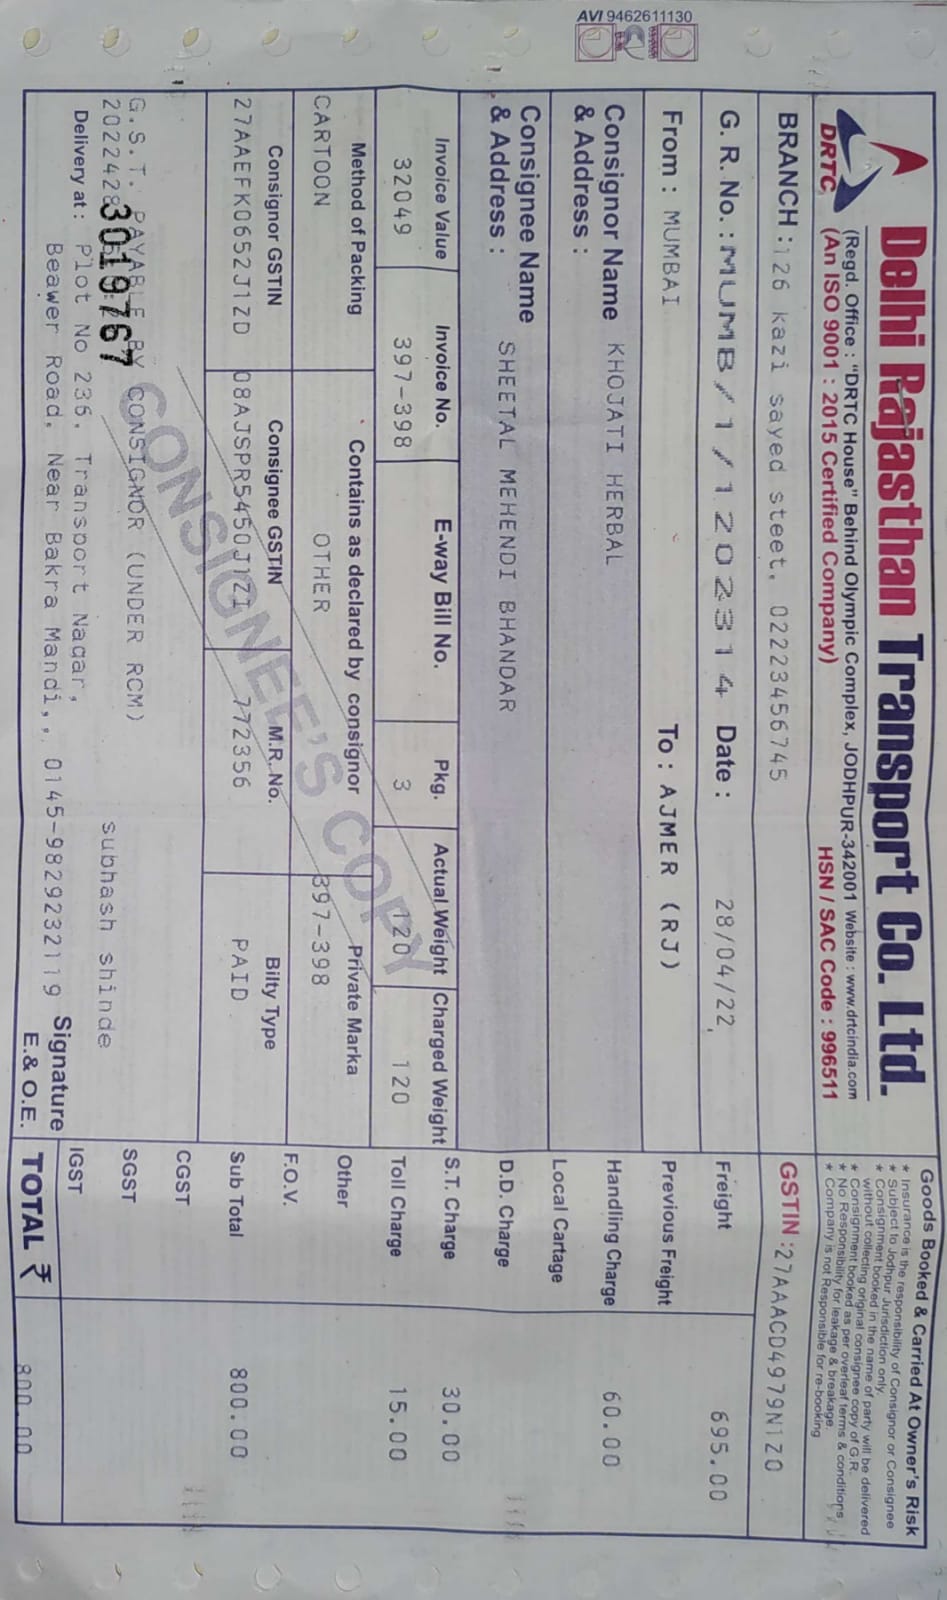 AVI 9462611130
Delhi Rajasthan Transport Co. Ltd.
DRTC
(Regd. Office : "DRTC House" Behind Olympic Complex, JODHPUR-342001 Website : www.drtcindia.com
(An ISO 9001 : 2015 Certified Company)
HSN / SAC Code : 996511
Goods Booked & Carried At Owner's Risk
* Insurance is the responsibility of Consignor or Consignee
* Subject to Jodhpur Jurisdiction only.
* Consignment booked in the name of party will be delivered
without collecting original consignee copy of G.R.
* Consignment booked as per overleaf terms & conditions
* No Responsibility for leakage & breakage.
* Company is not Responsible for re-booking
BRANCH : 126 kazi sayed steet. 02223456745
GSTIN : 27AAACD4979N1Z0
G. R. No. : MUMB/1/1202314 Date : 28/04/22
Freight 695.00
From : MUMBAI To : AJMER (RJ)
Previous Freight
Consignor Name KHOJATI HERBAL
& Address :
Handling Charge 60.00
Local Cartage
Consignee Name SHEETAL MEHENDI BHANDAR
& Address :
D.D. Charge
Invoice Value Invoice No. E-way Bill No. Pkg. Actual Weight Charged Weight
S.T. Charge 30.00
32049 397-398 3 120 120
Toll Charge 15.00
Method of Packing Contains as declared by consignor Private Marka
Other
CARTOON OTHER 397-398
F.O.V.
Consignor GSTIN Consignee GSTIN M.R. No. Bilty Type
27AAEFK0652J1ZD 08AJSPR5450J1ZI 772356 PAID
Sub Total 800.00
CONSIGNEE'S COPY
CGST
G.S.T. PAYABLE BY CONSIGNOR (UNDER RCM)
SGST
3019767
subhash shinde
Delivery at : Plot No 236. Transport Nagar,
IGST
Beawer Road. Near Bakra Mandi,, 0145-9829232119
Signature
E.& O.E.
TOTAL ₹ 800.00